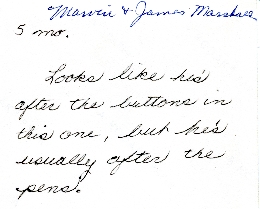 Marvin & James Marshall
5 mo.
Looks like he's
after the buttons in
this one, but he's
usually after the
pens.